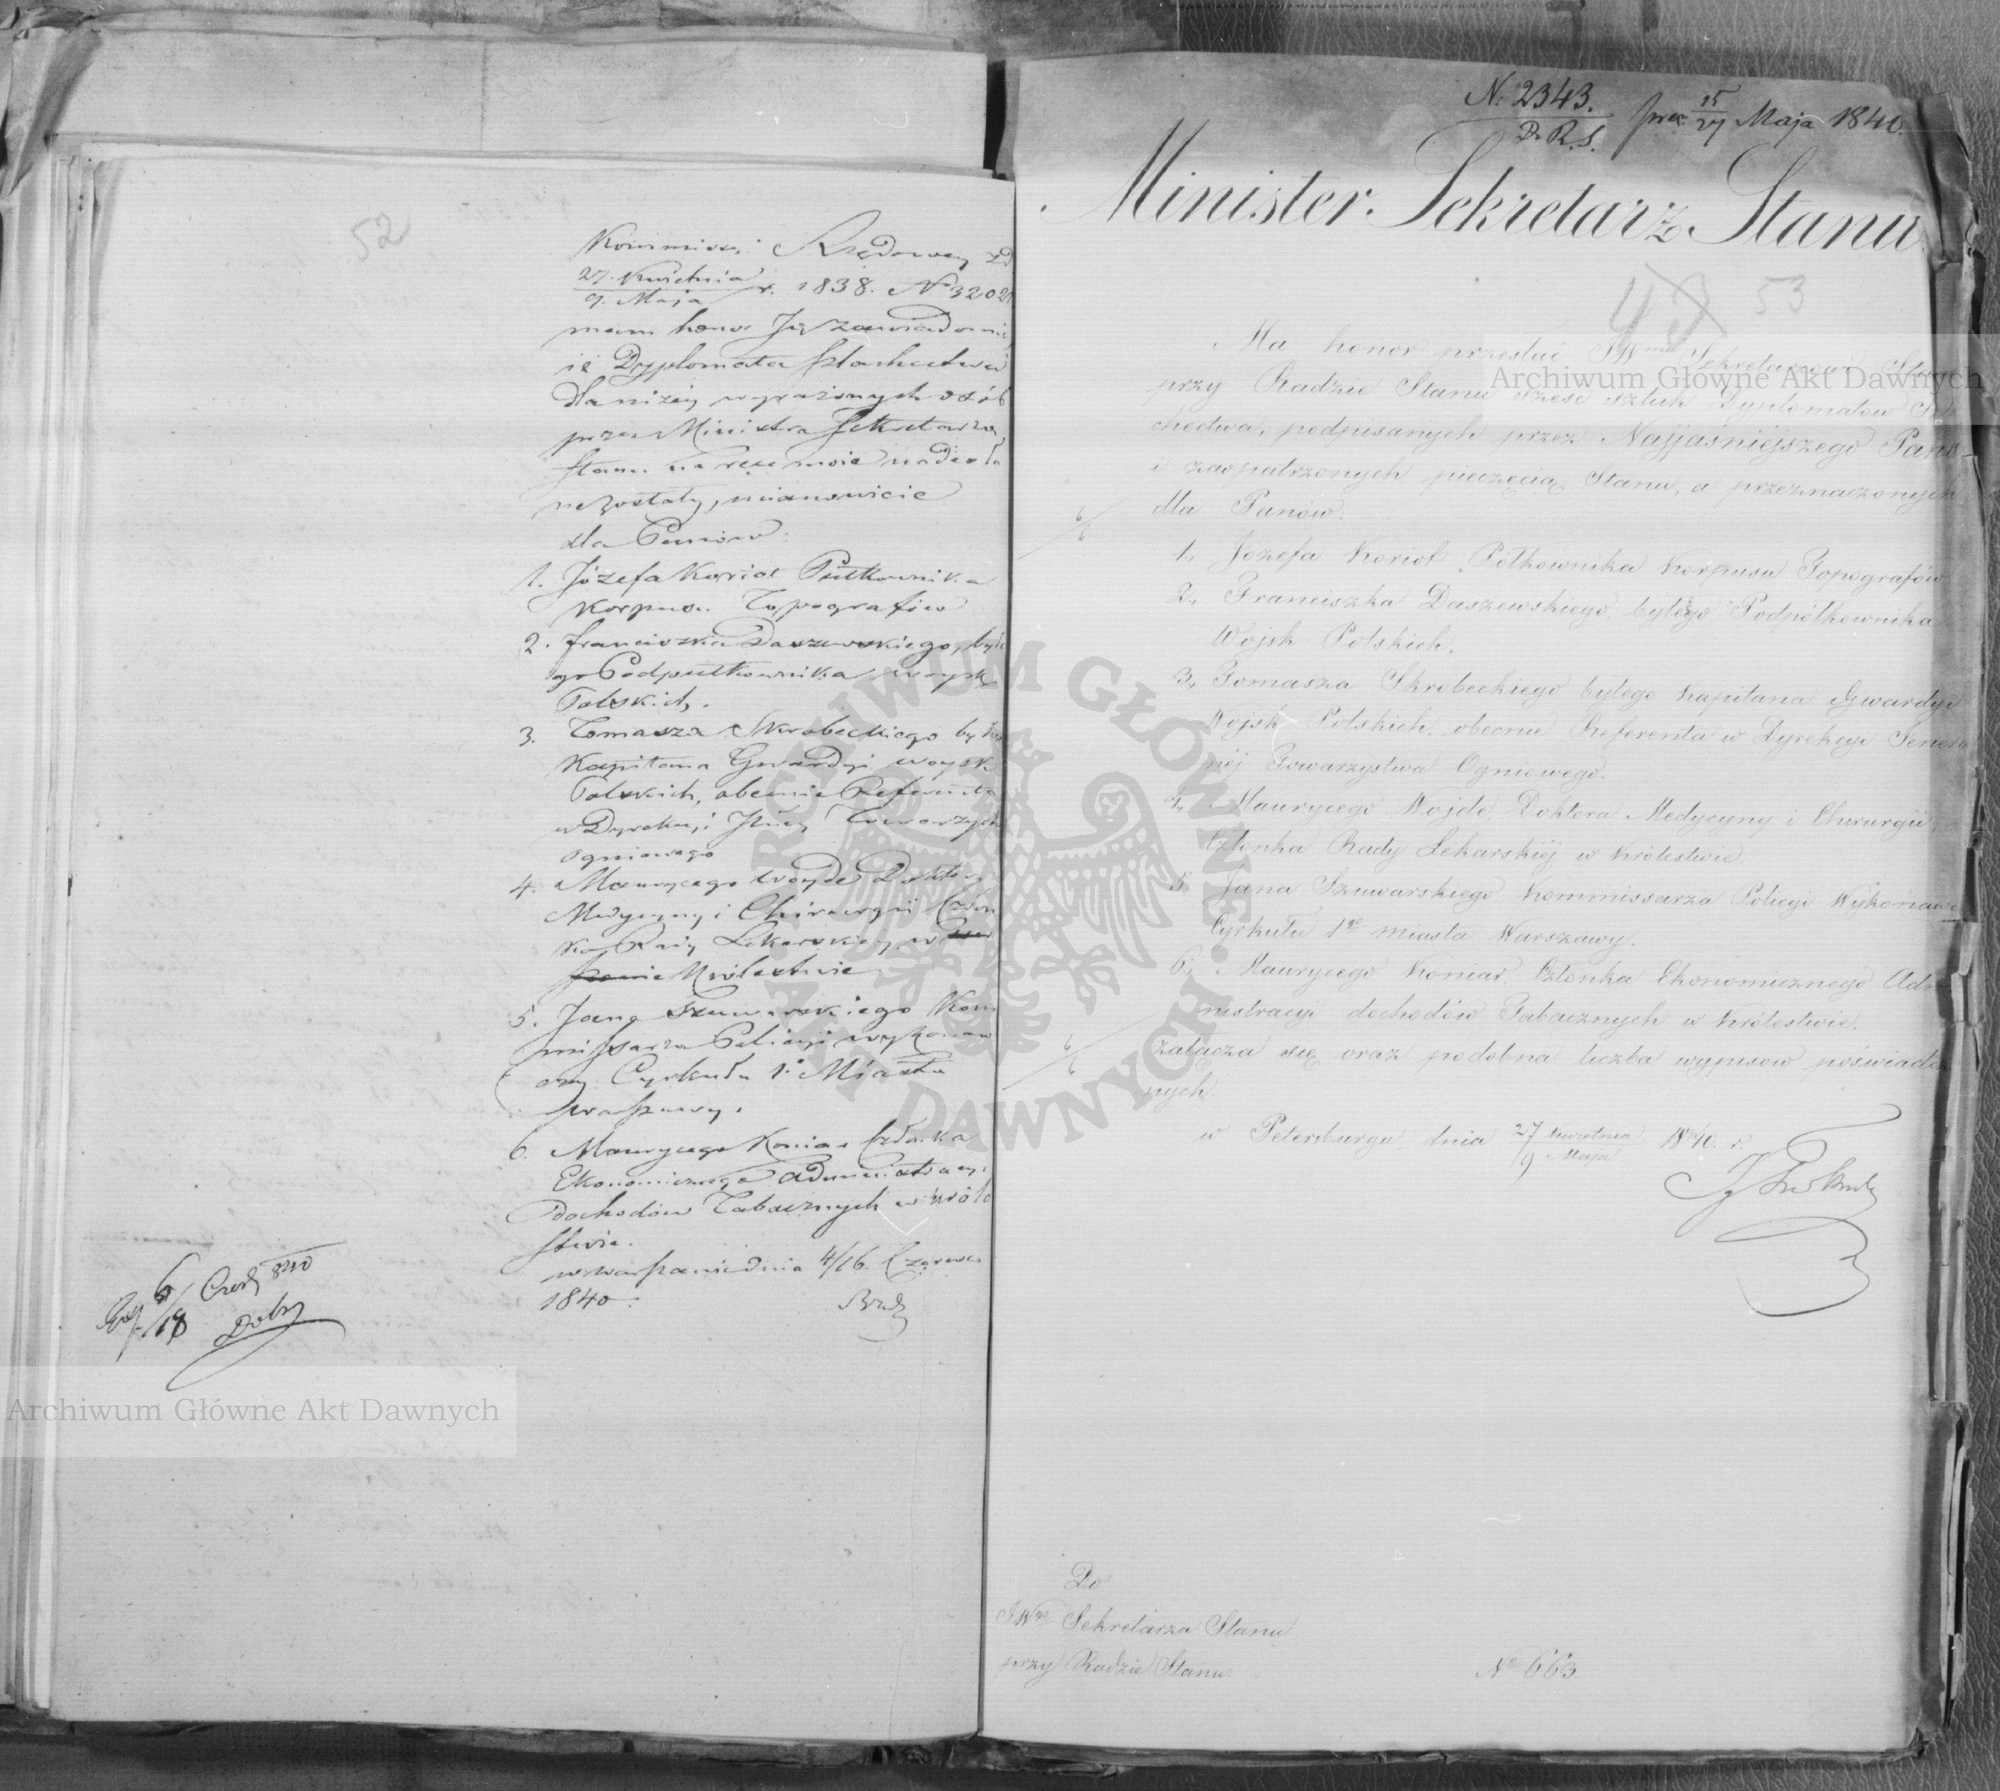 52
Kommissyi Rządowey zd
27. Kwietnia
9. Maja r. 1838. No 3202
mam honor Ją zawiadomić
iż Dyplomata szlachectwa
dla niżey wyrażonych osób
przez Ministra Sekretarza
Stanu na ręce moie nadesła
ne zostały, mianowicie
dla Panów:
1. Józefa Koriot Pułkownika
Korpusu Topografów
2. Franciszka Daszewskiego, byłe
go Podpułkownika woysk
Polskich.
3. Tomasza Skrobeckiego był
Kapitana Gwardyi woysk
Polskich, obecnie Referenta
w Dyrekcyi Towarzystw
Ogniowego
4. Maurycego Woyde Doktor
Medycyny i Chirurgii Człon
ka Rady Lekarskiey w
Królestwie
5. Jana Szuwarskiego Kom
missarza Policyi wykonaw
czey Cyrkułu 1. Miasta
Warszawy.
6. Maurycego Koniar Członka
Ekonomicznego Administracyi
Dochodów Tabacznych w Króle
stwie.
w Warszawie dnia 4/16 Czerwca
1840.
6/18 Czerw 840
N: 2343.
D.R.S.
prez 15/27 Maja 1840.
Minister Sekretarz Stanu
43 53
Ma honor przesłać JWmu Sekretarzowi Stanu
przy Radzie Stanu sześć sztuk Dyplomatów Szla
chectwa, podpisanych przez Najjaśniejszego Pana
i zaopatrzonych pieczęcią Stanu, a przeznaczonych
dla Panów:
1., Józefa Koriot, Półkownika Korpusu Topografów
2., Franciszka Daszewskiego, byłego Podpółkownika
Wojsk Polskich.
3., Tomasza Skrobeckiego byłego Kapitana Gwardyi
Wojsk Polskich, obecnie Referenta w Dyrekcyi Genera
nej Towarzystwa Ogniowego.
4., Maurycego Wojde, Doktora Medycyny i Chirurgii,
Członka Rady Lekarskiej w Królestwie
5., Jana Szuwarskiego, Kommissarza Policyi Wykonaw
Cyrkułu 1go miasta Warszawy.
6., Maurycego Koniar, Członka Ekonomicznego Admi
nistracyi dochodów Tabacznych w Królestwie.
załącza się oraz podobna liczba wypisów poświadczo
nych.
w Petersburgu dnia 27 Kwietnia / 9 Maja 1840. r.
Do
JWo Sekretarza Stanu
przy Radzie Stanu
No 663
Archiwum Główne Akt Dawnych
Archiwum Główne Akt Dawnych
ARCHIWUM GŁÓWNE AKT DAWNYCH